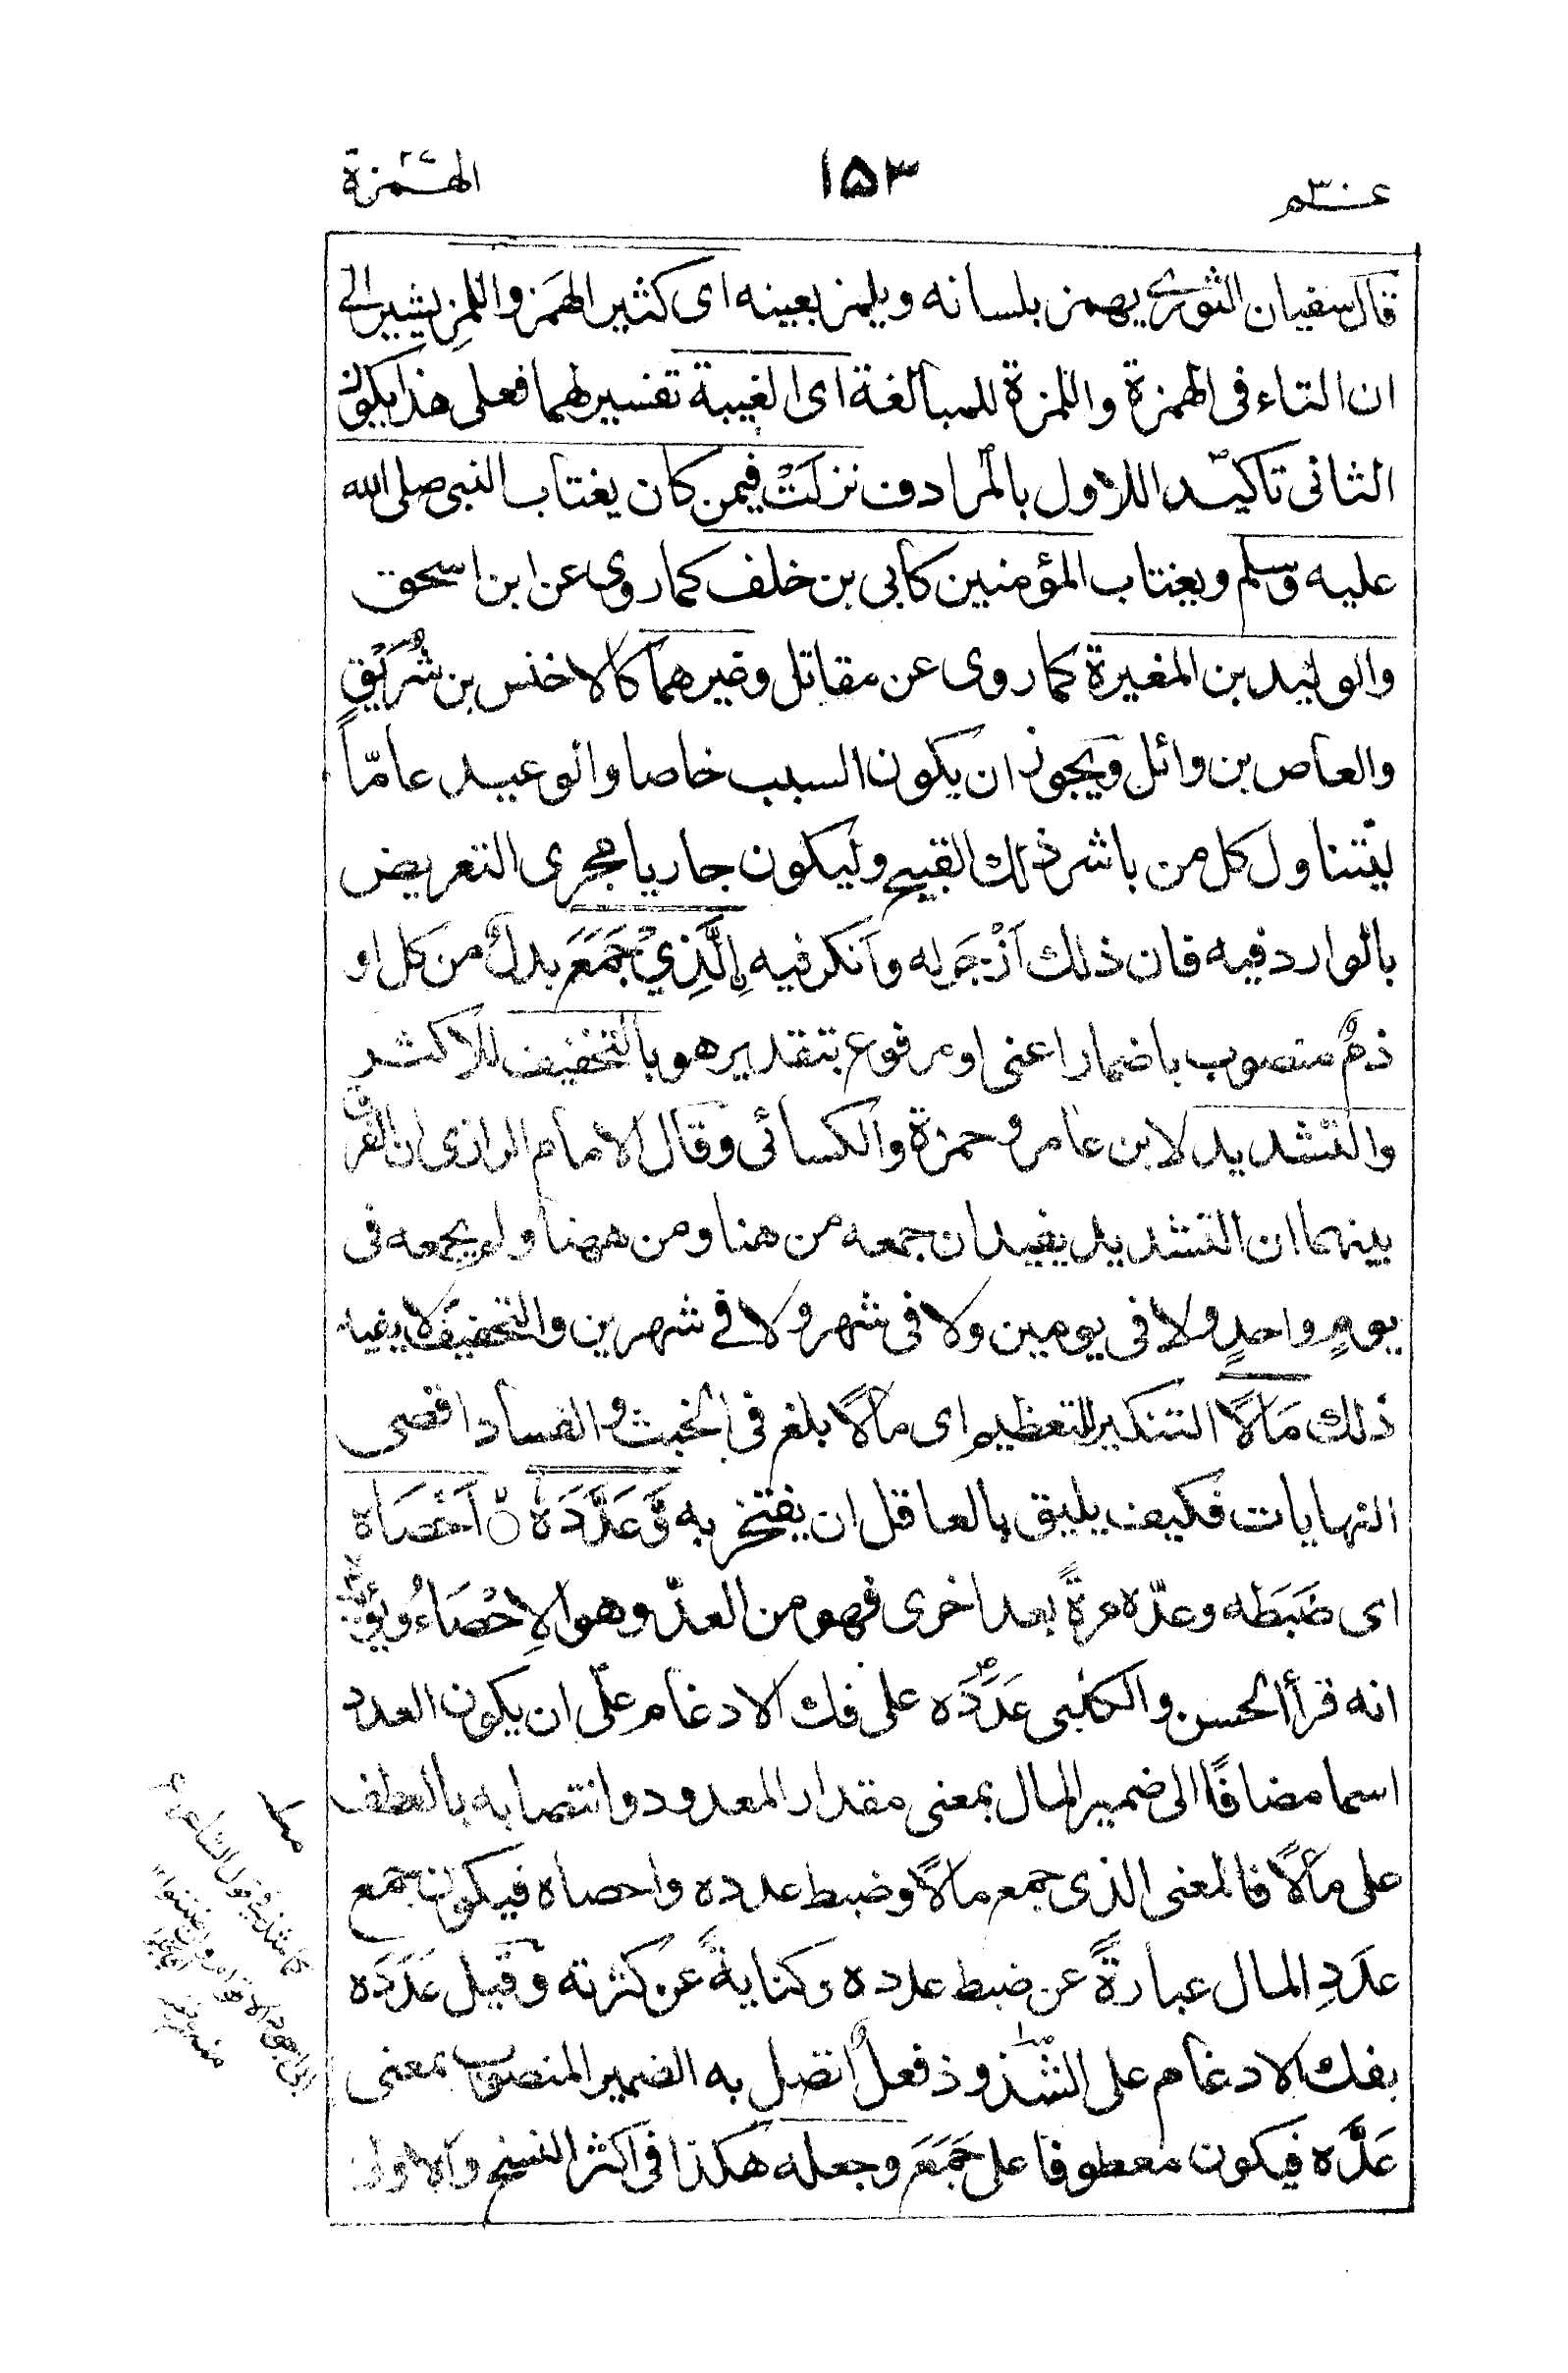 عـــم ٣٠
١٥٣
الهـمزة ١٠٤
قال سفيان الثوري يهمز بلسانه ويلمز بعينه اى كثير الهَمز واللمزِ يشير الى
ان التاء فى الهمزة واللمزة للمبالغة اى الغيبة تفسير لهما فعلى هذا يكون
الثانى تاكيدا للاول بالمرادف نزلَتْ فيمن كان يغتاب النبى صلى الله
عليه وسلم ويغتاب المؤمنين كأبى بن خلف كما روى عن ابن اسحق
والوليد بن المغيرة كما روى عن مقاتل وغيرهما كالاخنس بن شُرَيْقٍ
والعاص بن وائل ويجوز ان يكون السبب خاصا والوعيد عامّاً
ليتناول كل من باشر ذلك القبيح وليكون جاريا مجرى التعريض
بالوارد فيه فان ذلك اَزْجَر له وَاَنكر فيه اِۨلَّذِيْ جَمَعَ بدلٌ من كل او
ذمٌ منصوب باضمار اعنى او مرفوع بتقدير هو بالتخفيف للاكثر
والتشديد لابن عامر وحمزة والكسائى وقال الامام الرازى ان الفرق
بينهما ان التشديد يفيد ان جمعه من هنا ومن ههنا ولم يجمعه فى
يومٍ واحدٍ ولا فى يومين ولا فى شهر ولا فے شهرين والتخفيف لا يفيد
ذلك مَالًا التنكير للتعظيم اى مالًا بلغ فى الخبث والفساد اقصى
النهايات فكيف يليق بالعاقل ان يفتخر به وَّعَدَّدَهٗ ۙ اَحْصَاه
اى ضَبَطَه وعدّه مرةً بعد اخرى فهو من العدّ وهو الاِحْصَاءُ ويؤيده
انه قرأ الحسن والكلبى عَدَدَه على فك الادغام على ان يكون العدد
اسما مضافًا الى ضمير المال بمعنى مقدار المعدود وانتصابه بالعطف
على مالًا فالمعنى الذى جمع مالًا وضبط عدده واحصاه فيكون جمع
عدَدِ المال عبارةً عن ضبط عدده وكنايةً عن كثرته وقيل عَدَدَه
بفك الادغام على الشذوذ فعلٌ اتصل به الضمير المنصوب بمعنى
عَدَّه فيكون معطوفا على جَمَعَ وجعله هكذا فى اكثر النسخ والاولى
كما شذ فى قول الشاعر
انى اجود لاقوام وان ضننوا